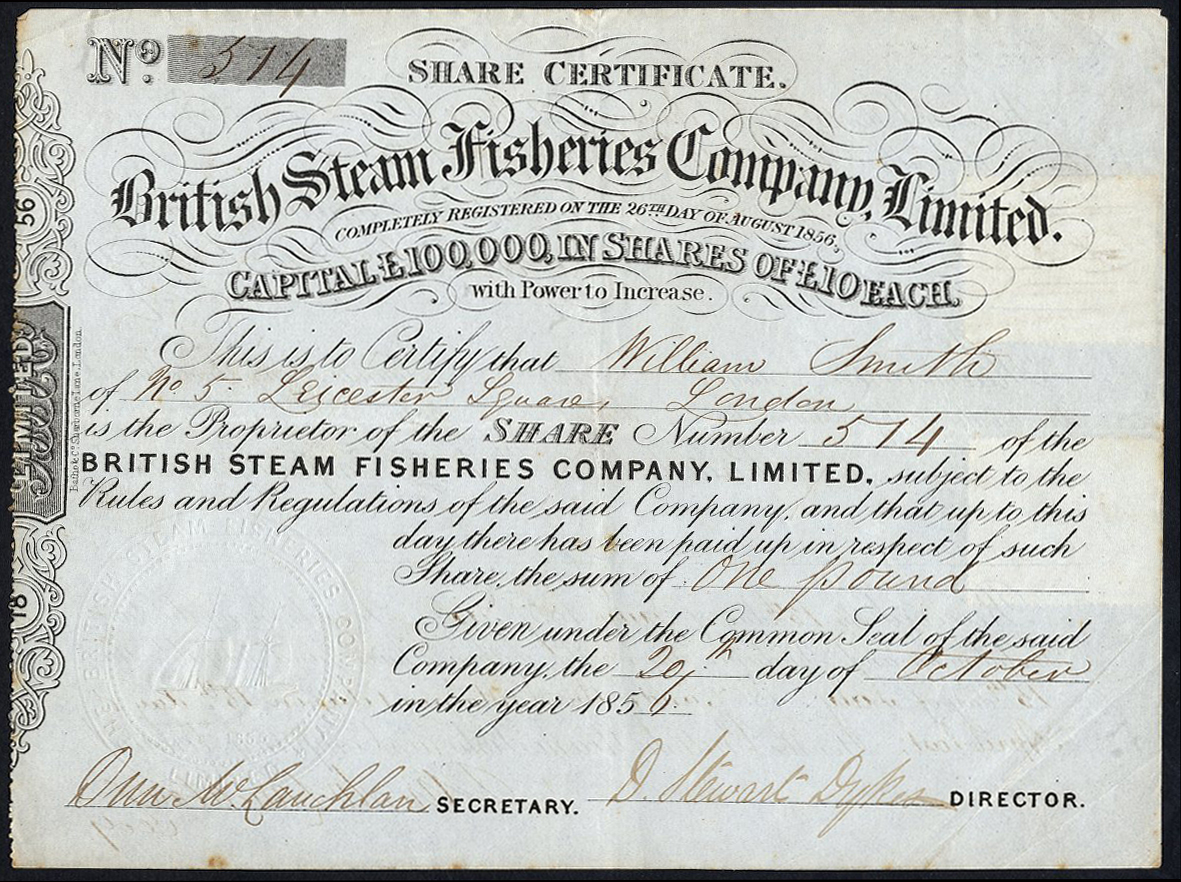 No. 514
SHARE CERTIFICATE.
British Steam Fisheries Company, Limited.
COMPLETELY REGISTERED ON THE 26TH DAY OF AUGUST 1856,
CAPITAL £100,000, IN SHARES OF £10 EACH,
with Power to Increase.
This is to Certify that William Smith
of No 5 Leicester Square, London
is the Proprietor of the SHARE Number 514 of the
BRITISH STEAM FISHERIES COMPANY, LIMITED, subject to the
Rules and Regulations of the said Company, and that up to this
day there has been paid up in respect of such
Share, the sum of One pound
Given under the Common Seal of the said
Company, the 20th day of October
in the year 1856.
McLauchlan SECRETARY.
D. Stewart Dykes DIRECTOR.
18 LIMITED 56
BRITISH STEAM FISHERIES COMPANY
LIMITED